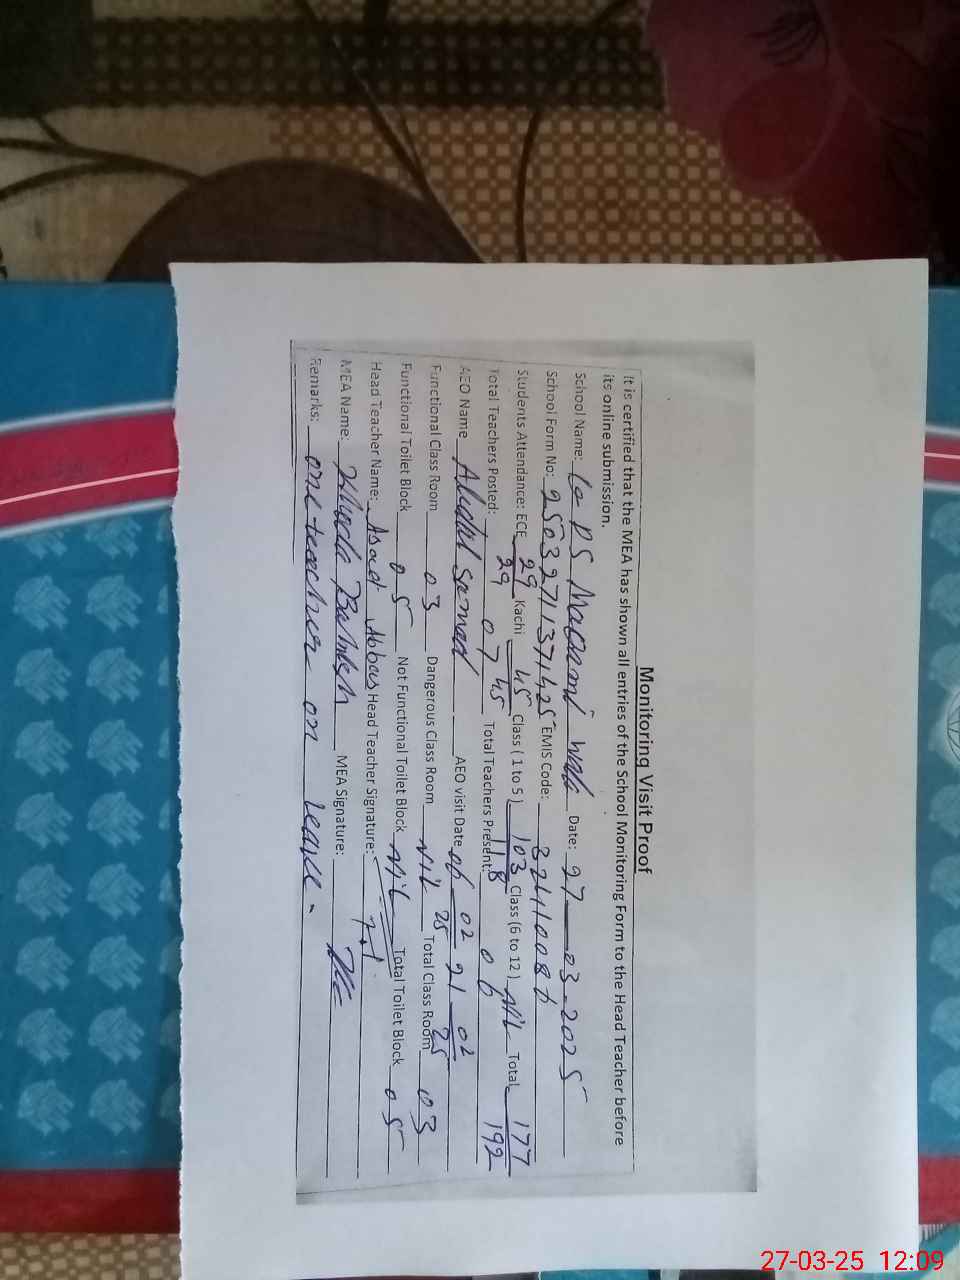 Monitoring Visit Proof
It is certified that the MEA has shown all entries of the School Monitoring Form to the Head Teacher before
its online submission.
School Name: G PS Wala Date: 27-03-2025
School Form No: 25032711371425 EMIS Code: 32410086
Students Attendance: ECE 29/29 Kachi 45/45 Class (1 to 5) 103/118 Class (6 to 12) Nil Total 177/192
Total Teachers Posted: 07 Total Teachers Present: 06
AEO Name Abdul Samad AEO visit Date 06 02/25 21 02/25
Functional Class Room 03 Dangerous Class Room Nil Total Class Room 03
Functional Toilet Block 05 Not Functional Toilet Block Nil Total Toilet Block 05
Head Teacher Name: Asad Abbas Head Teacher Signature:
MEA Name: Khuda Bakhsh MEA Signature:
Remarks: one teacher on leave.
27-03-25 12:09